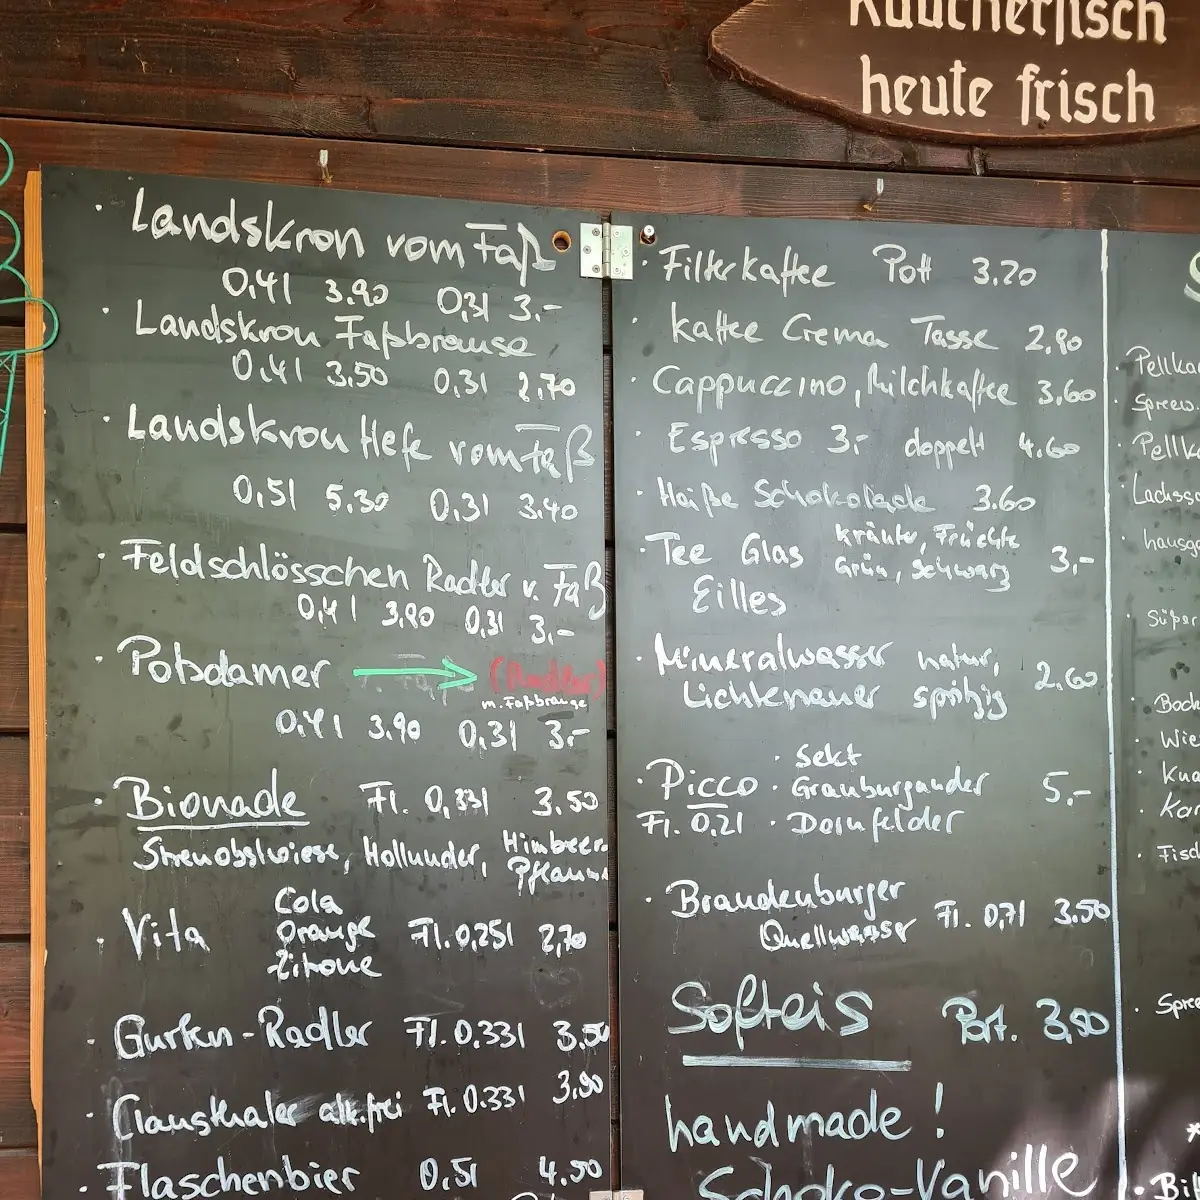 Räucherfisch
heute frisch
· Landskron vom Faß
0,4l 3.90 0,3l 3.-
· Landskron Faßbrause
0,4l 3.50 0,3l 2,70
· Landskron Hefe vom Faß
0,5l 5.30 0,3l 3.40
· Feldschlösschen Radler v. Faß
0,4l 3,90 0,3l 3.-
· Potsdamer → (Radler)
m. Faßbrause
0,4l 3.90 0,3l 3.-
· Bionade Fl. 0,33l 3.50
Streuobstwiese, Hollunder, Himbeer-
Pflaume
Cola
· Vita Orange Fl. 0,25l 2,70
Zitrone
Gurken-Radler Fl. 0.33l 3,50
· Clausthaler alk.frei Fl. 0.33l 3,90
· Flaschenbier 0,5l 4.50
· Filterkaffee Pott 3.20
· Kaffee Crema Tasse 2,90
· Cappuccino, Milchkaffee 3,60
· Espresso 3,- doppelt 4.60
· Heiße Schokolade 3.60
· Tee Glas Kräuter, Früchte
Grün, Schwarz 3,-
Eilles
· Mineralwasser natur,
Lichtenauer spritzig 2.60
· Sekt
· Picco · Grauburgunder 5,-
Fl. 0,2l · Dornfelder
· Brandenburger
Quellwasser Fl. 0,7l 3.50
Softeis Port. 3,50
handmade!
Schoko-Vanille
· Pellka
· Spreew
· Pellka
Lachss
· hausge
· Süßer
· Bock
· Wie
· Kna
· Kar
· Fisch
· Spree
*